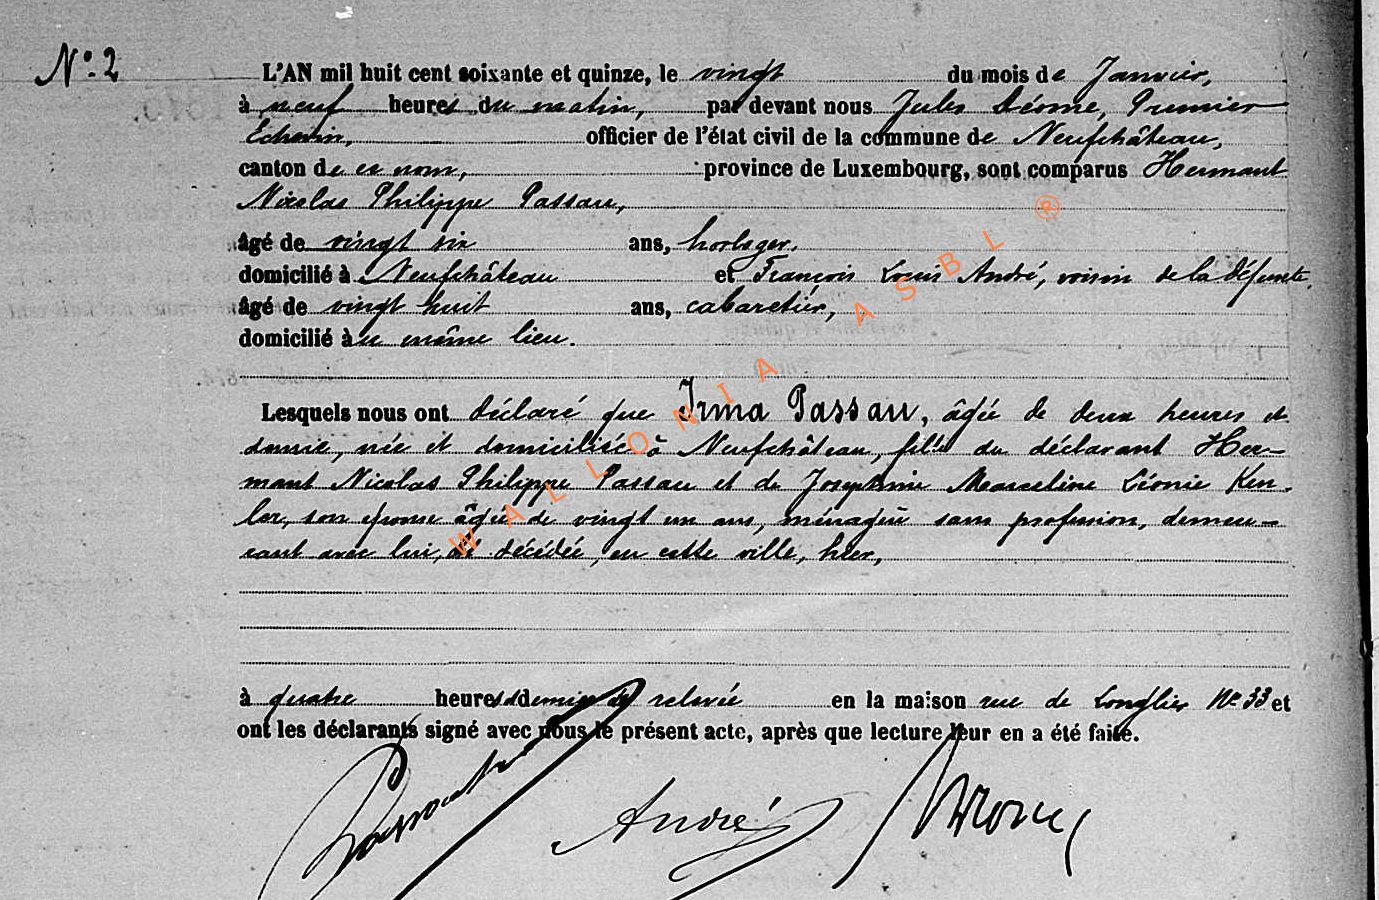 N° 2
L'AN mil huit cent soixante et quinze, le vingt du mois de Janvier,
à neuf heures du matin, par devant nous Jules Déome, Premier
Echevin, officier de l'état civil de la commune de Neufchâteau,
canton de ce nom, province de Luxembourg, sont comparus Hermant
Nicolas Philippe Passau,
âgé de vingt six ans, horloger,
domicilié à Neufchâteau et François Louis André, voisin de la défunte,
âgé de vingt huit ans, cabaretier,
domicilié à u même lieu.
Lesquels nous ont déclaré que Irma Passau, âgée de deux heures et
demie, née et domiciliée à Neufchâteau, fille du déclarant Her-
mant Nicolas Philippe Passau et de Joséphine Marceline Léonie
son épouse âgée de vingt un ans, ménagère sans profession, demeu-
rant avec lui, est décédée, en cette ville, hier,
à quatre heures et demie de relevée en la maison rue de Longlier N° 33 et
ont les déclarants signé avec nous le présent acte, après que lecture leur en a été faite.
André
WALLONIA ASBL ®